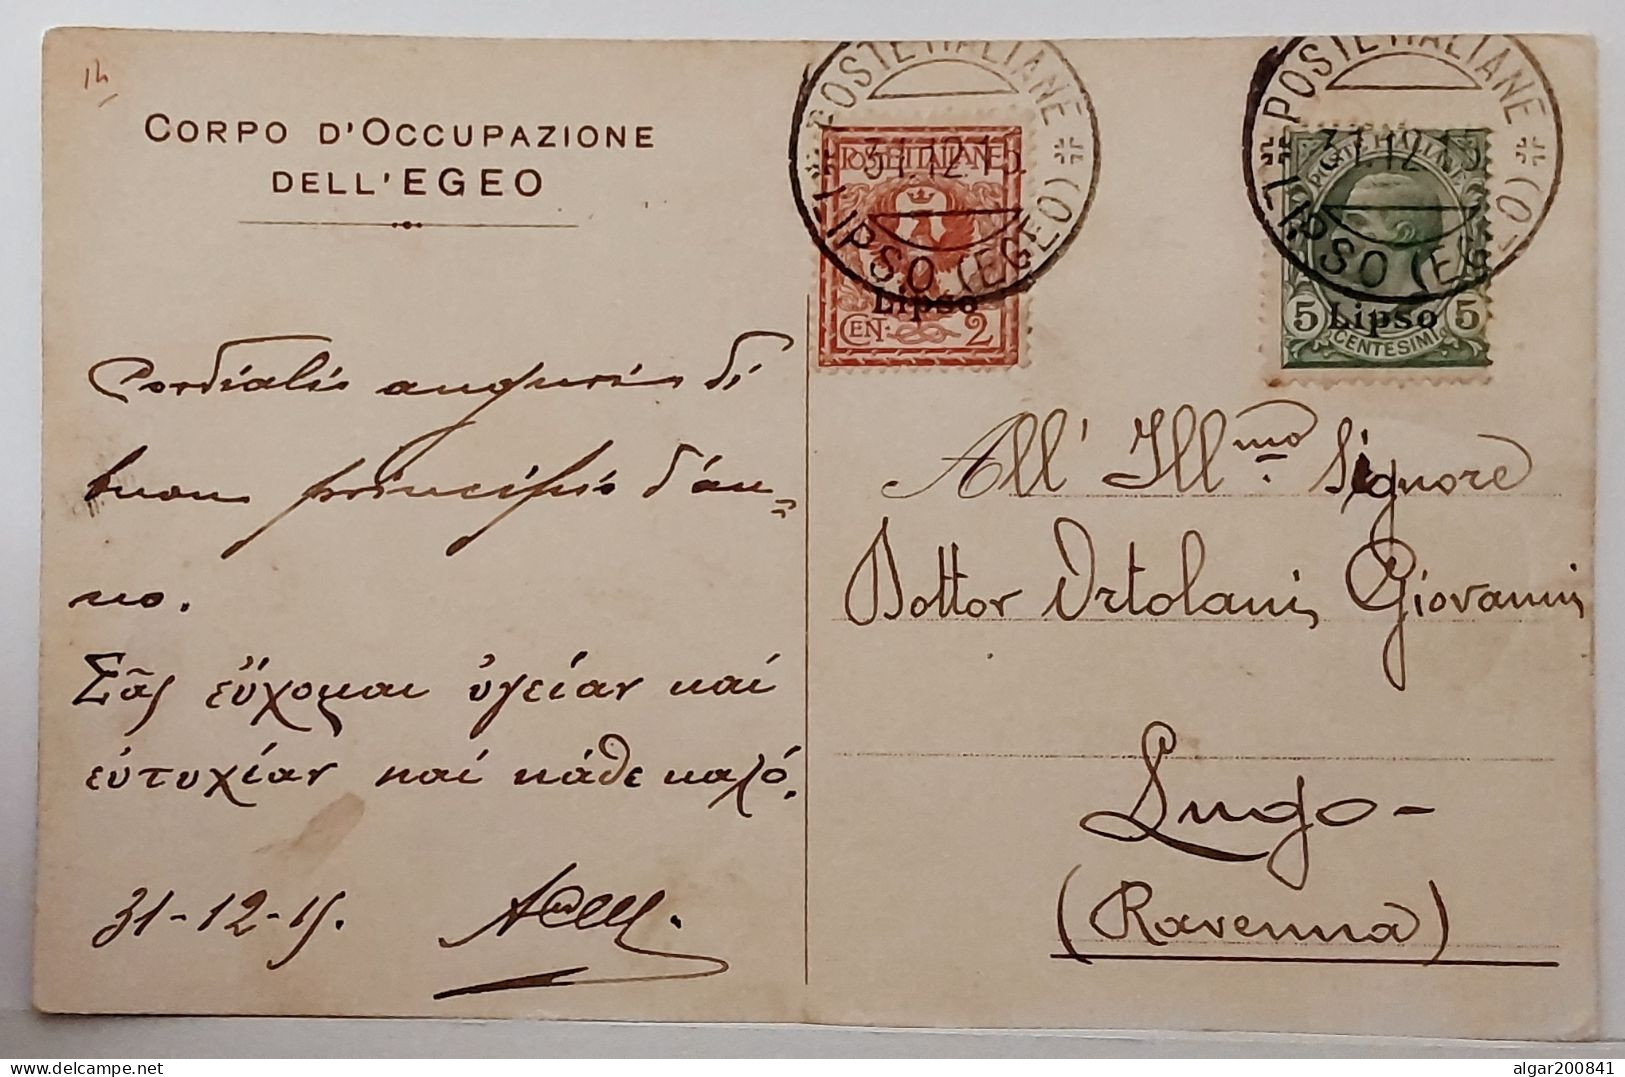 14
CORPO D'OCCUPAZIONE
DELL'EGEO
POSTE ITALIANE
31.12.15
LIPSO (EGEO)
POSTE ITALIANE
Lipso
CENT. 2
POSTE ITALIANE
31.12.15
LIPSO (EGEO)
POSTE ITALIANE
5 Lipso 5
CENTESIMI
Cordialis auguris di
buon principis d'an=
no.
Σᾶς εὔχομαι ὑγείαν καί
εὐτυχίαν καί κάθε καλό.
31-12-15.
All' Ill.mo Signore
Dottor Ortolani Giovanni
Lugo-
(Ravenna)
algar200841